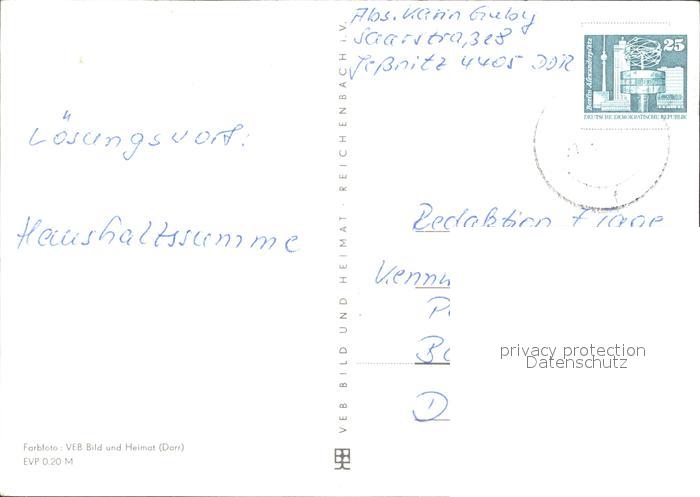 Abs. Karin
Saarstra, 328
Jeßnitz 4405 DDR
25
Berlin, Alexanderplatz
DEUTSCHE DEMOKRATISCHE REPUBLIK
Lösungswort:
Haushaltssumme
VEB BILD UND HEIMAT · REICHENBACH i. V.
Redaktion
privacy protection
Datenschutz
Farbfoto: VEB Bild und Heimat (Darr)
EVP 0.20 M